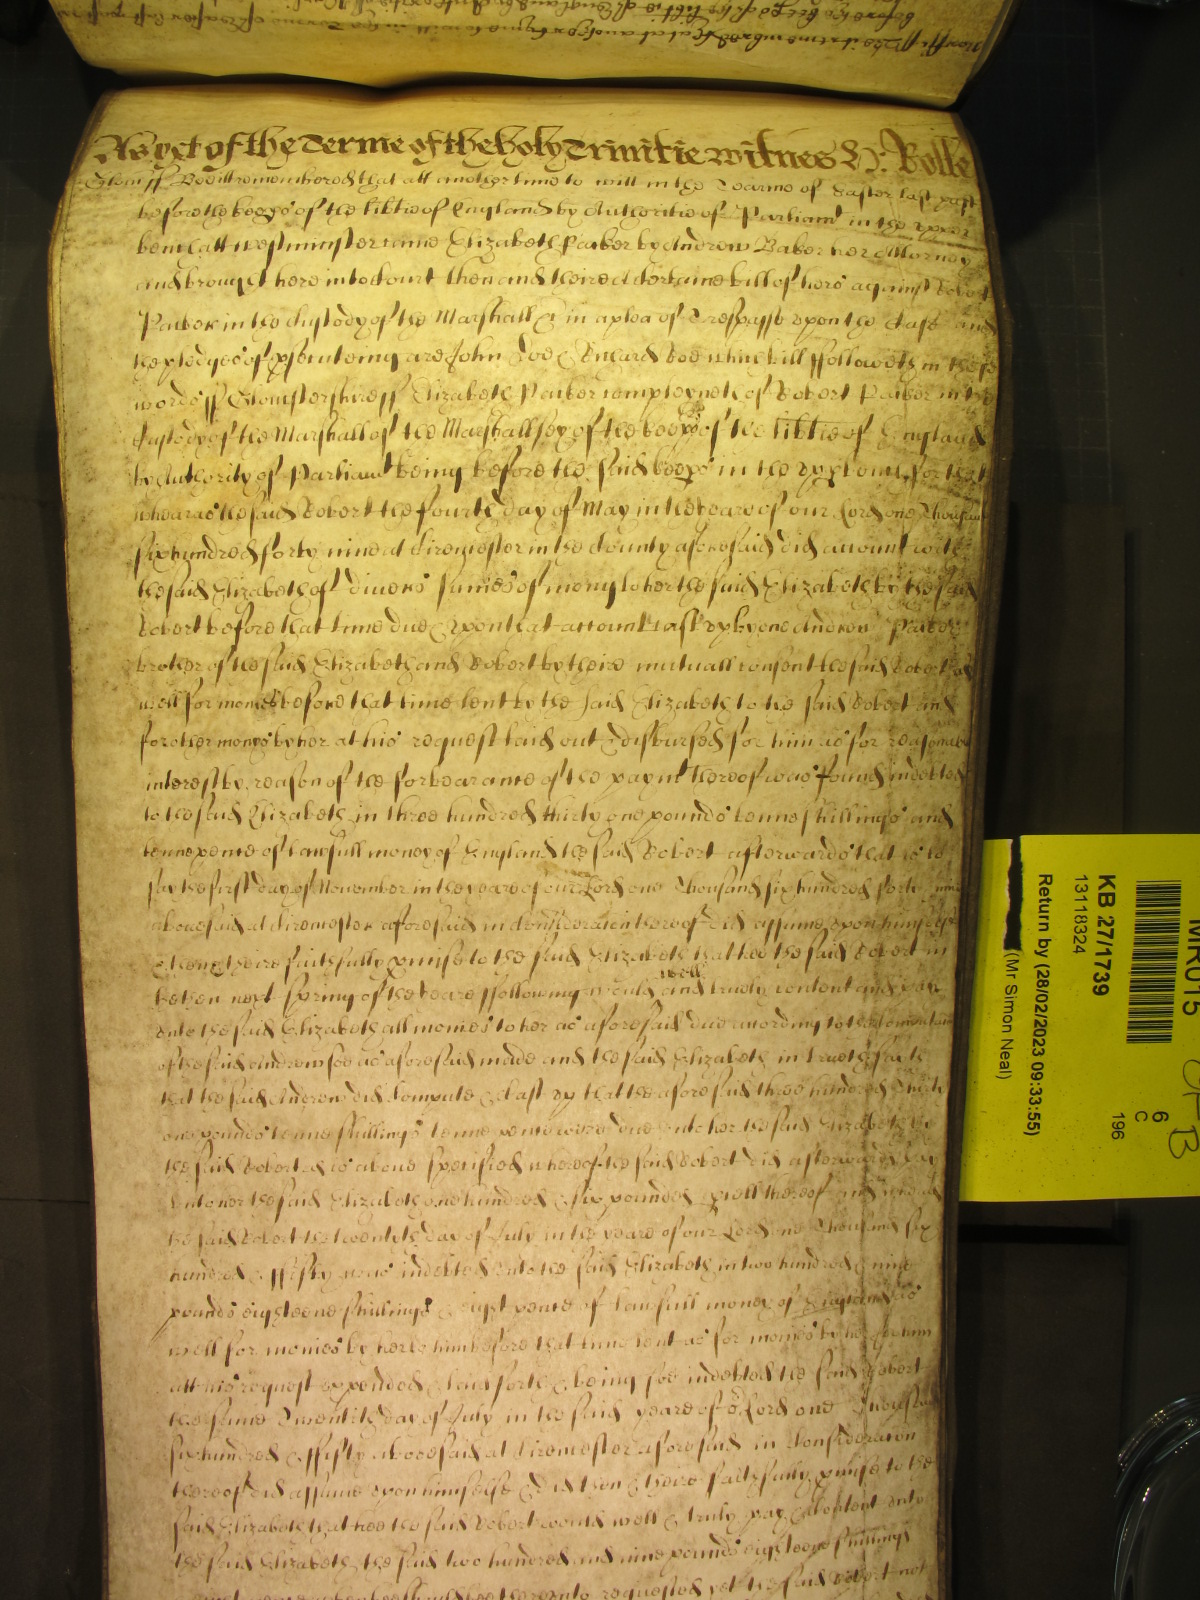 As yet of the Terme of the holy Trinitie witnes H: Rolle
Gloucr ss Bee it remembered that att another time to witt in the Tearme of Easter last past
before the keeprs of the libtie of England by Authoritie of Parliamt in the upper
bench att westminster came Elizabeth Parker by Andrew Baker her Attorney
and brought here into Court then and theire A certaine bill of hers against Robert
Parker in the Custody of the Marshall &c in a plea of Trespasse upon the Case and
the pledges of psecuteing are John Doe & Richard Roe which bill ffolloweth in these
words ss Gloucstershire ss Elizabeth Parker complayneth of Robert Parker in the
Custody of the Marshall of the Marshallsey of the keeprs of the libtie of England
by Authority of Parliamt being before the said keeprs in the upp bench for that
wheareas the said Robert the fourth day of May in the yeare of our Lord one Thousand
six hundred forty nine at Cirencester in the County aforesaid did account with
the said Elizabeth of divers sumes of mony to her the said Elizabeth by the said
Robert before that time due & upon that account cast up by one Andrew Parker
brother of the said Elizabeth and Robert by theire mutuall consent the said Robert as
well for monies before that time lent by the said Elizabeth to the said Robert and
for other monys by her at his request laid out & disbursed for him as for reasonable
interest by reason of the forbearance of the paymt thereof was found indebted
to the said Elizabeth in three hundred thirty one pounds tenne shillings and
tenne pence of lawfull money of England the said Robert afterwards that is to
say the first day of November in the yeare of our Lord one Thousand six hundred forty nine
abovesaid at Cirencester aforesaid in Consideracion thereof did assume upon himselfe
& then & there faithfully pmise to the said Elizabeth that hee the said Robert in
the then next spring of the yeare ffollowing would well and truely content and pay
unto the said Elizabeth all monies to her as aforesaid due according to the
of the said Andrew soe as aforesaid made and the said Elizabeth in trueth saith
that the said Andrew did Compute & Cast up that the aforesaid three hundred thirty
one pounds tenne shillings tenne pence were due unto her the said Elizabeth by
the said Robert as is above specified whereof the said Robert did afterwards pay
unto her the said Elizabeth one hundred & six pounds pcell thereof And whereas
the said Robert the twentith day of July in the yeare of our Lord one Thousand six
hundred & ffifty was indebted unto the said Elizabeth in two hundred & nine
pounds eighteene shillings & eight pence of lawfull money of England as
well for monies by her to him before that time lent as for monies by her for him
att his request expended & laid forth & being soe indebted the said Robert
the same Twentith day of July in the said yeare of or Lord one Thousand
six hundred & ffifty abovesaid at Cirencester aforesaid in Consideracion
thereof did assume upon himselfe & did then & there faithfully pmise to the
said Elizabeth that hee the said Robert would well & truly pay & content unto
the said Elizabeth the said two hundred and nine pounds eighteene shillings
hee thereunto requested yet the said Robert not
KB 27/1739
13118324
Return by (28/02/2023 09:33:55)
(Mr Simon Neal)
MR015
6
C
196